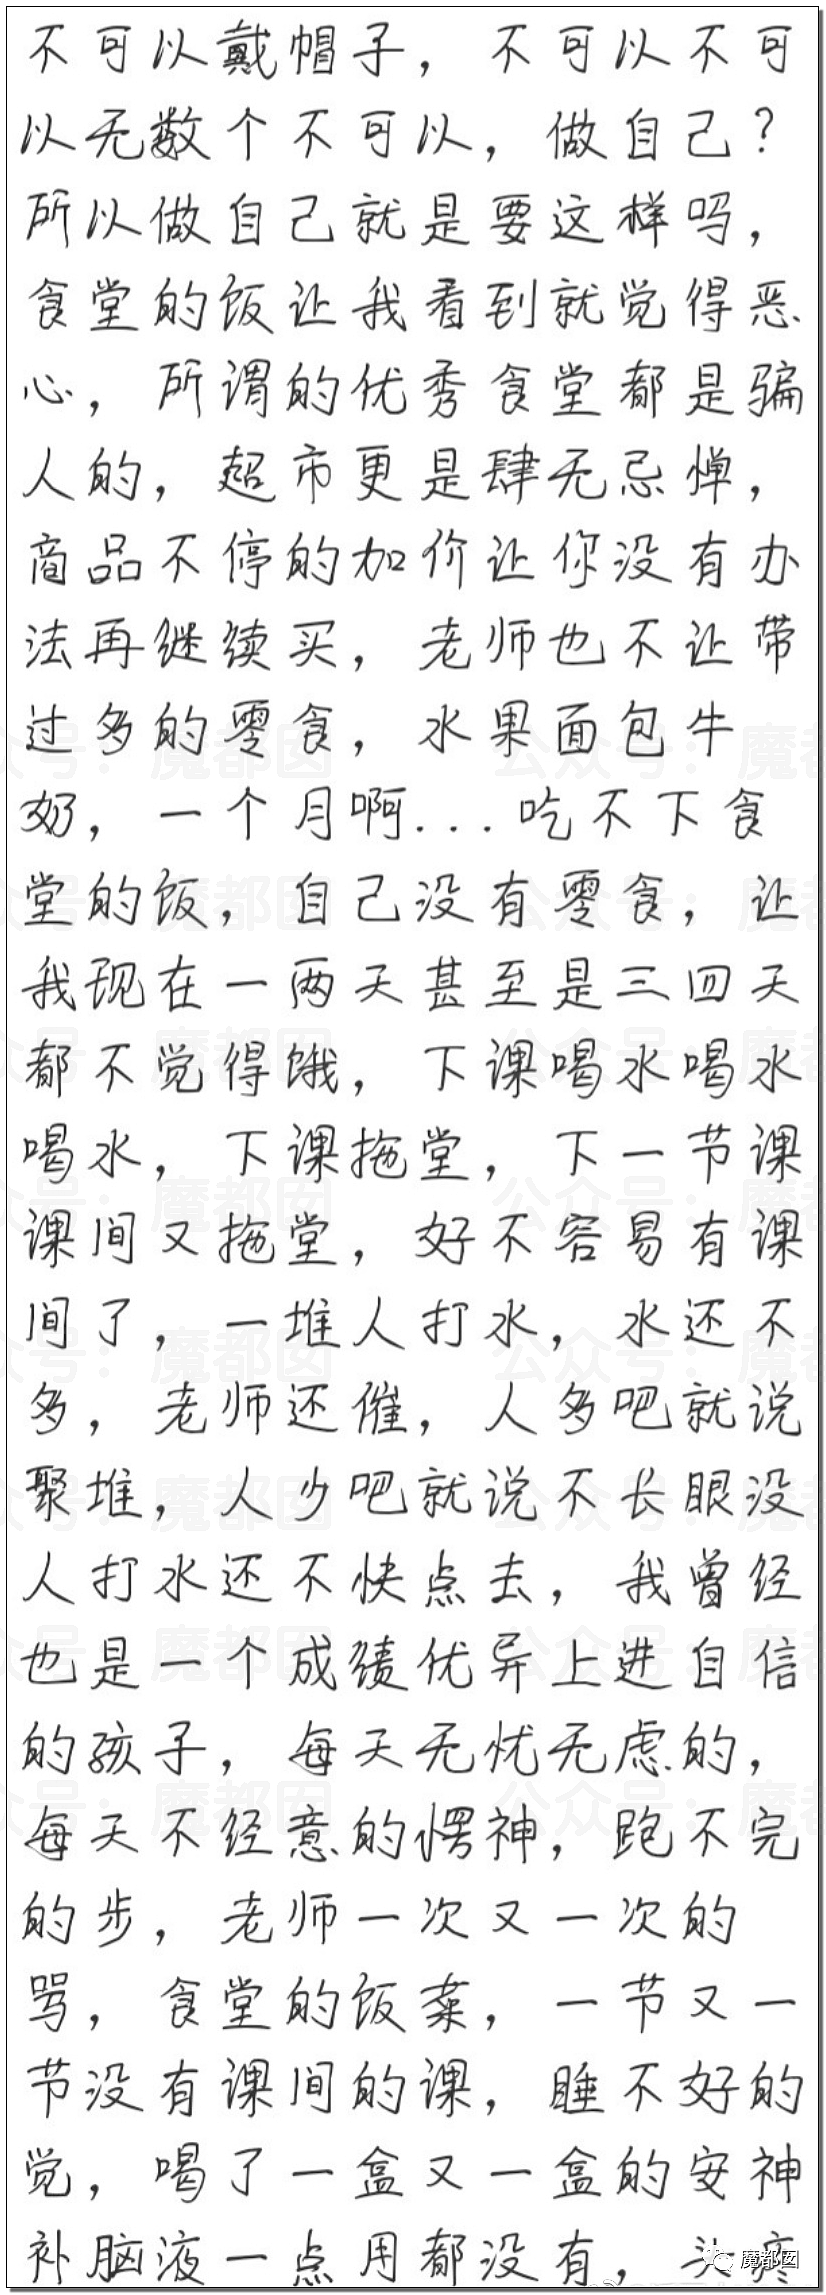 不可以戴帽子，不可以不可
以无数个不可以，做自己？
所以做自己就是要这样吗，
食堂的饭让我看到就觉得恶
心，所谓的优秀食堂都是骗
人的，超市更是肆无忌惮，
商品不停的加价让你没有办
法再继续买，老师也不让带
过多的零食，水果面包牛
奶，一个月啊...吃不下食
堂的饭，自己没有零食，让
我现在一两天甚至是三四天
都不觉得饿，下课喝水喝水
喝水，下课拖堂，下一节课
课间又拖堂，好不容易有课
间了，一堆人打水，水还不
多，老师还催，人多吧就说
聚堆，人少吧就说不长眼没
人打水还不快点去，我曾经
也是一个成绩优异上进自信
的孩子，每天无忧无虑的，
每天不经意的愣神，跑不完
的步，老师一次又一次的
骂，食堂的饭菜，一节又一
节没有课间的课，睡不好的
觉，喝了一盒又一盒的安神
补脑液一点用都没有，头疼
公众号：魔都囡
魔都囡